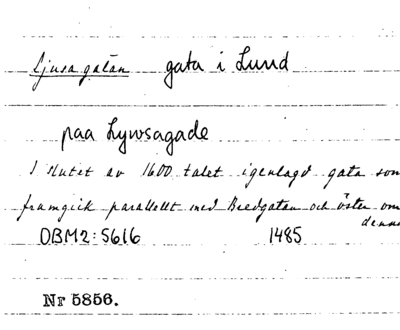 Ljusa gatan gata i Lund
paa Lywsagade
I slutet av 1600 talet igenlagd gata som
framgick parallellt med Bredgatan och öster om
denna
DBM2:5616 1485
Nr 5856.